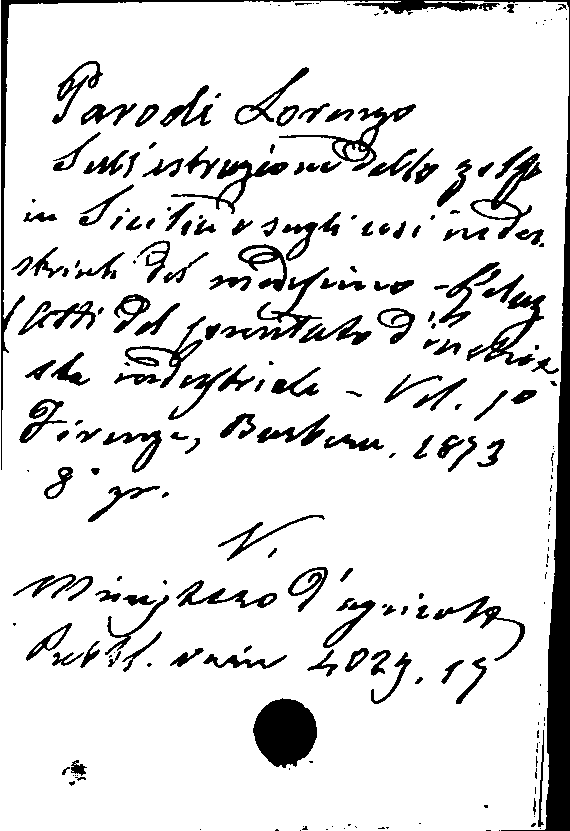 Parodi Lorenzo
Sull'estrazione dello zolfo
in Sicilia e sugli usi indu-
striali del medesimo - Relaz
(Atti del Comitato d'inchie-
sta industriale - Vol. 1º
Firenze, Barbera. 1873
8º gr.
V.
Ministero d'agricolt
Pubbl. varie 4029. 17